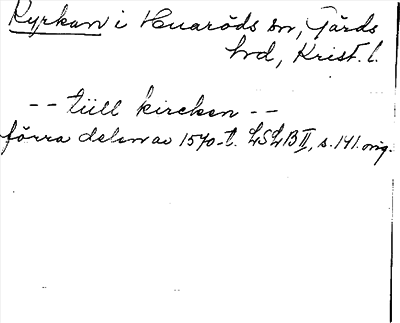 Kyrkan i Huaröds sn, Gärds
hd, Krist. l.
-- tüll kircken --
förra delen av 1570-t. LSLB II, s. 141. orig.